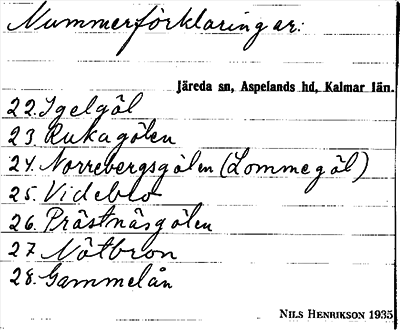 Nummerförklaringar:
Järeda sn, Aspelands hd, Kalmar län.
22. Igelgöl
23. Rukagölen
24. Norrebergsgölen (Lommegöl)
25. Videblo
26. Prästnäsgölen
27 Nötbron
28. Gammelån
NILS HENRIKSON 1935